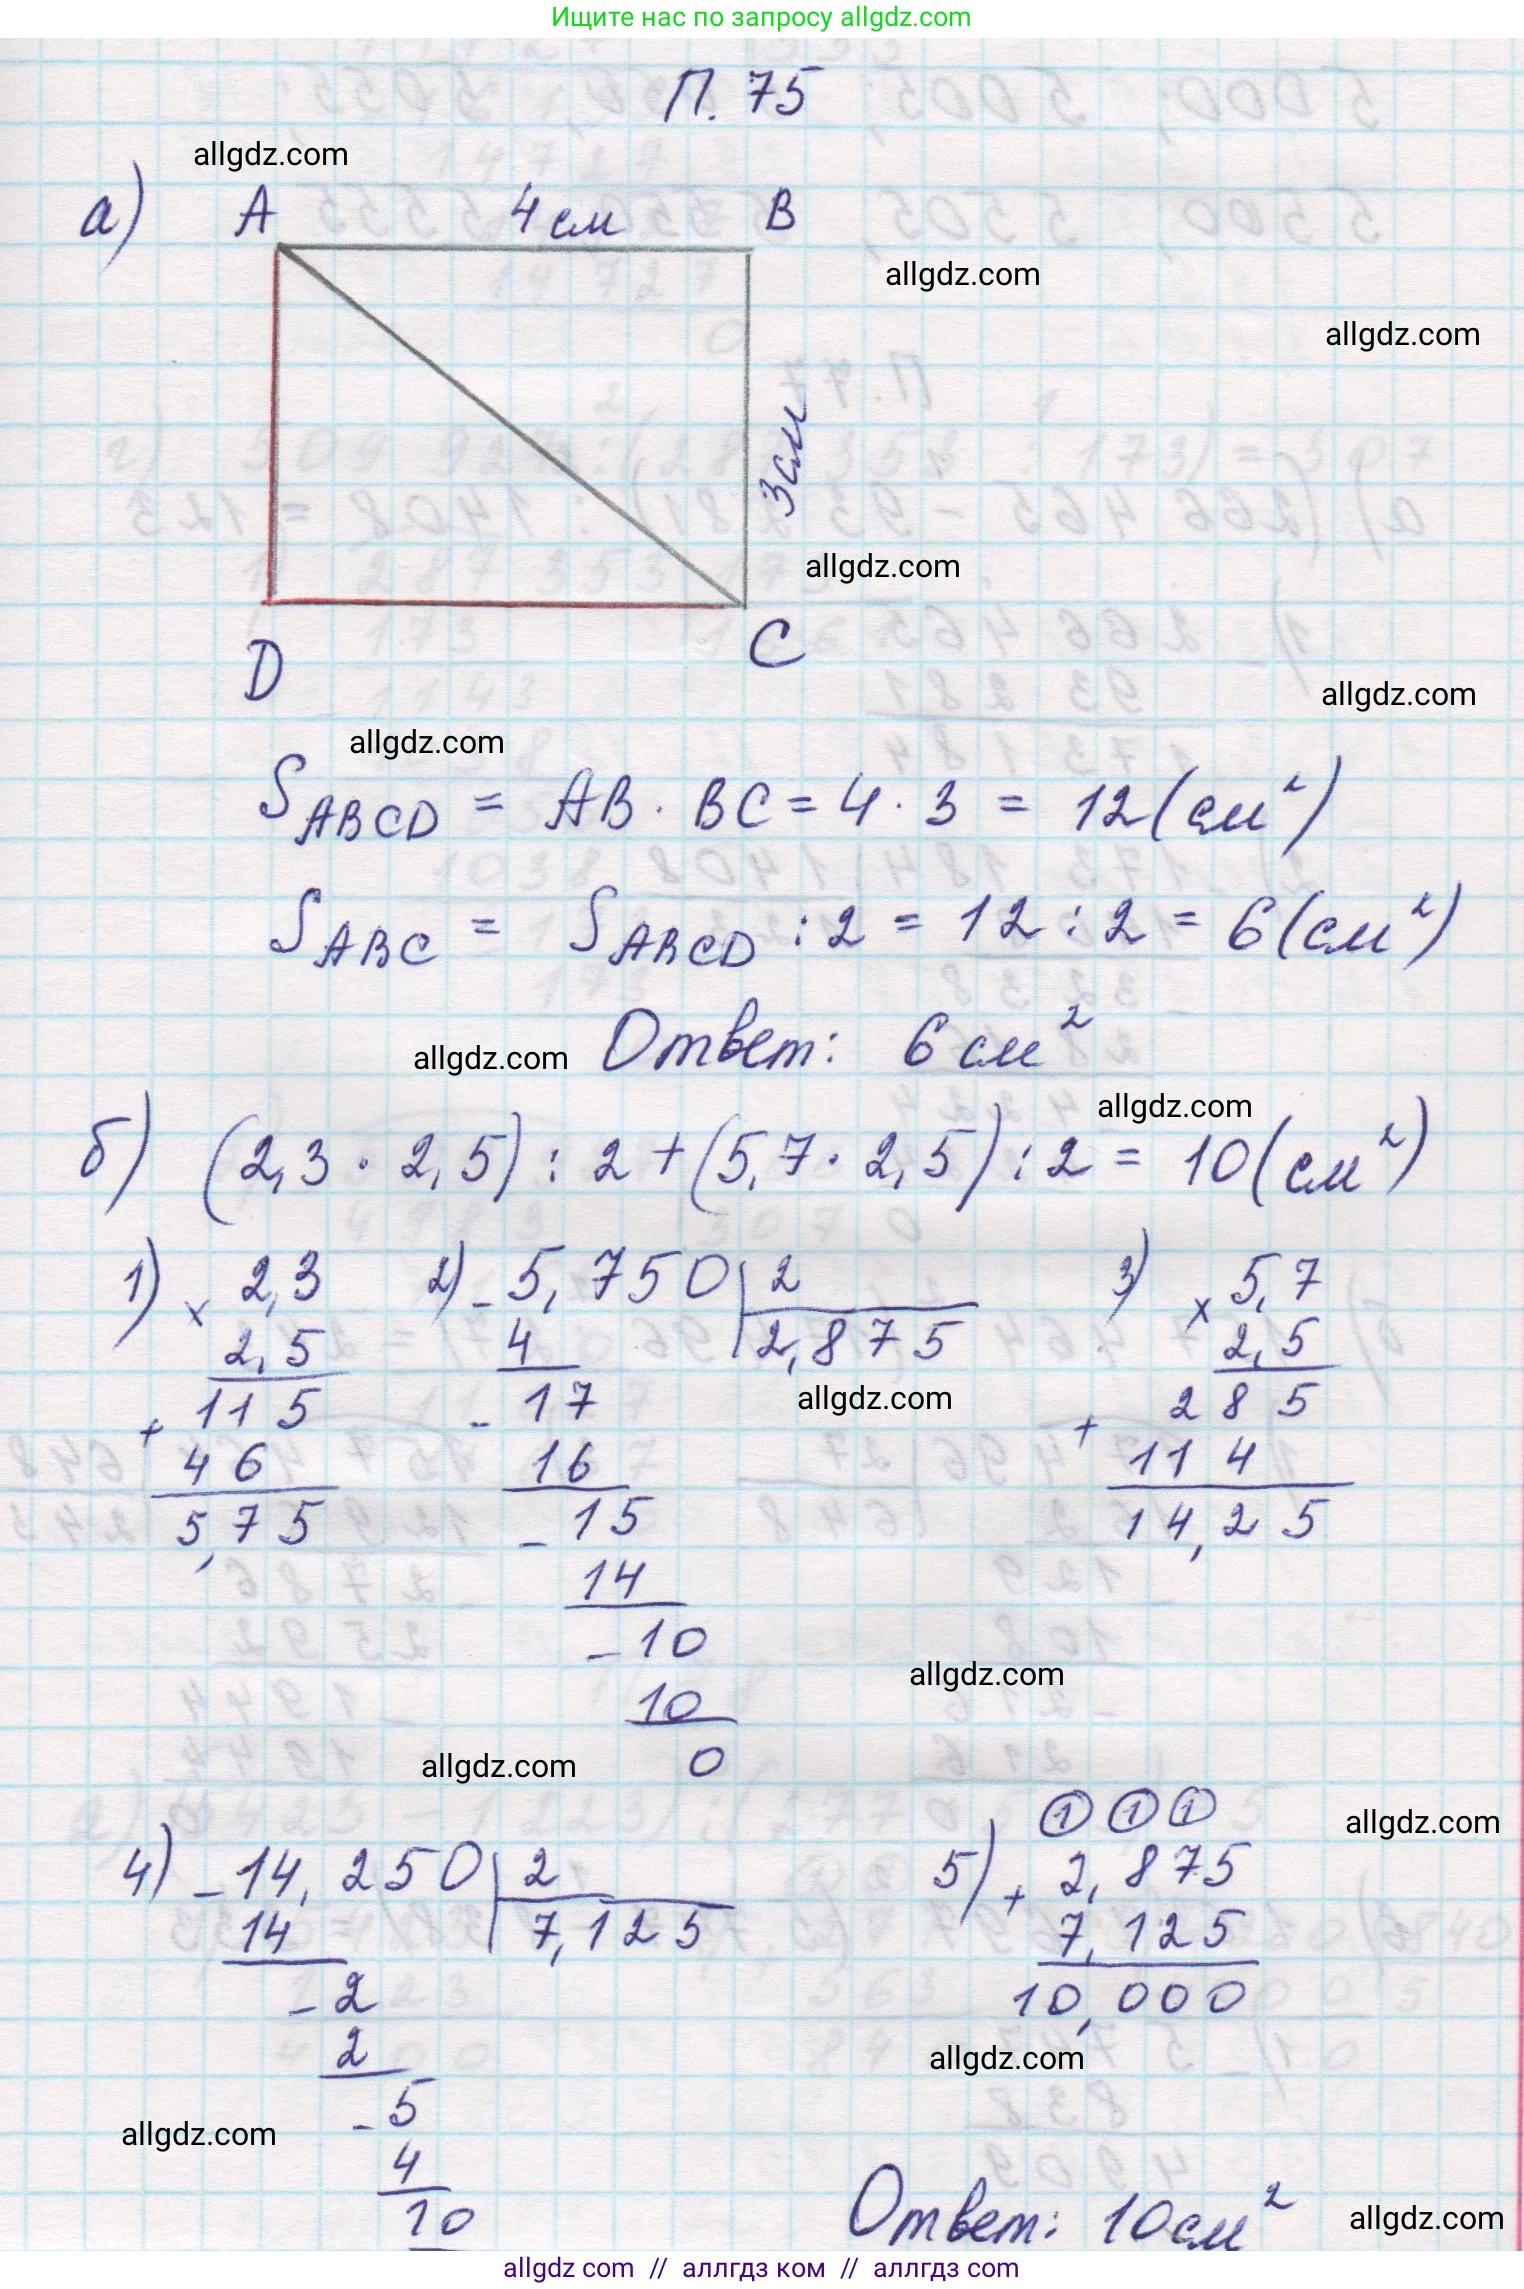 Ищите нас по запросу allgdz.com
П. 75
allgdz.com
а) A 4 см B
allgdz.com
allgdz.com
3 см
allgdz.com
D C
allgdz.com
allgdz.com
S_ABCD = AB · BC = 4 · 3 = 12 (см²)
S_ABC = S_ABCD : 2 = 12 : 2 = 6 (см²)
allgdz.com Ответ: 6 см²
allgdz.com
б) (2,3 · 2,5) : 2 + (5,7 · 2,5) : 2 = 10 (см²)
1) × 2,3
2,5
+ 115
46
5,75
2) - 5,750 | 2
4 2,875
- 17
16
- 15
14
- 10
10
0
3) × 5,7
2,5
+ 285
114
14,25
allgdz.com
allgdz.com
allgdz.com
allgdz.com
4) - 14,250 | 2
14 7,125
- 2
2
- 5
4
10
5) ① ① ①
+ 2,875
7,125
10,000
allgdz.com
allgdz.com
Ответ: 10 см²
allgdz.com
allgdz com // аллгдз ком // аллгдз com